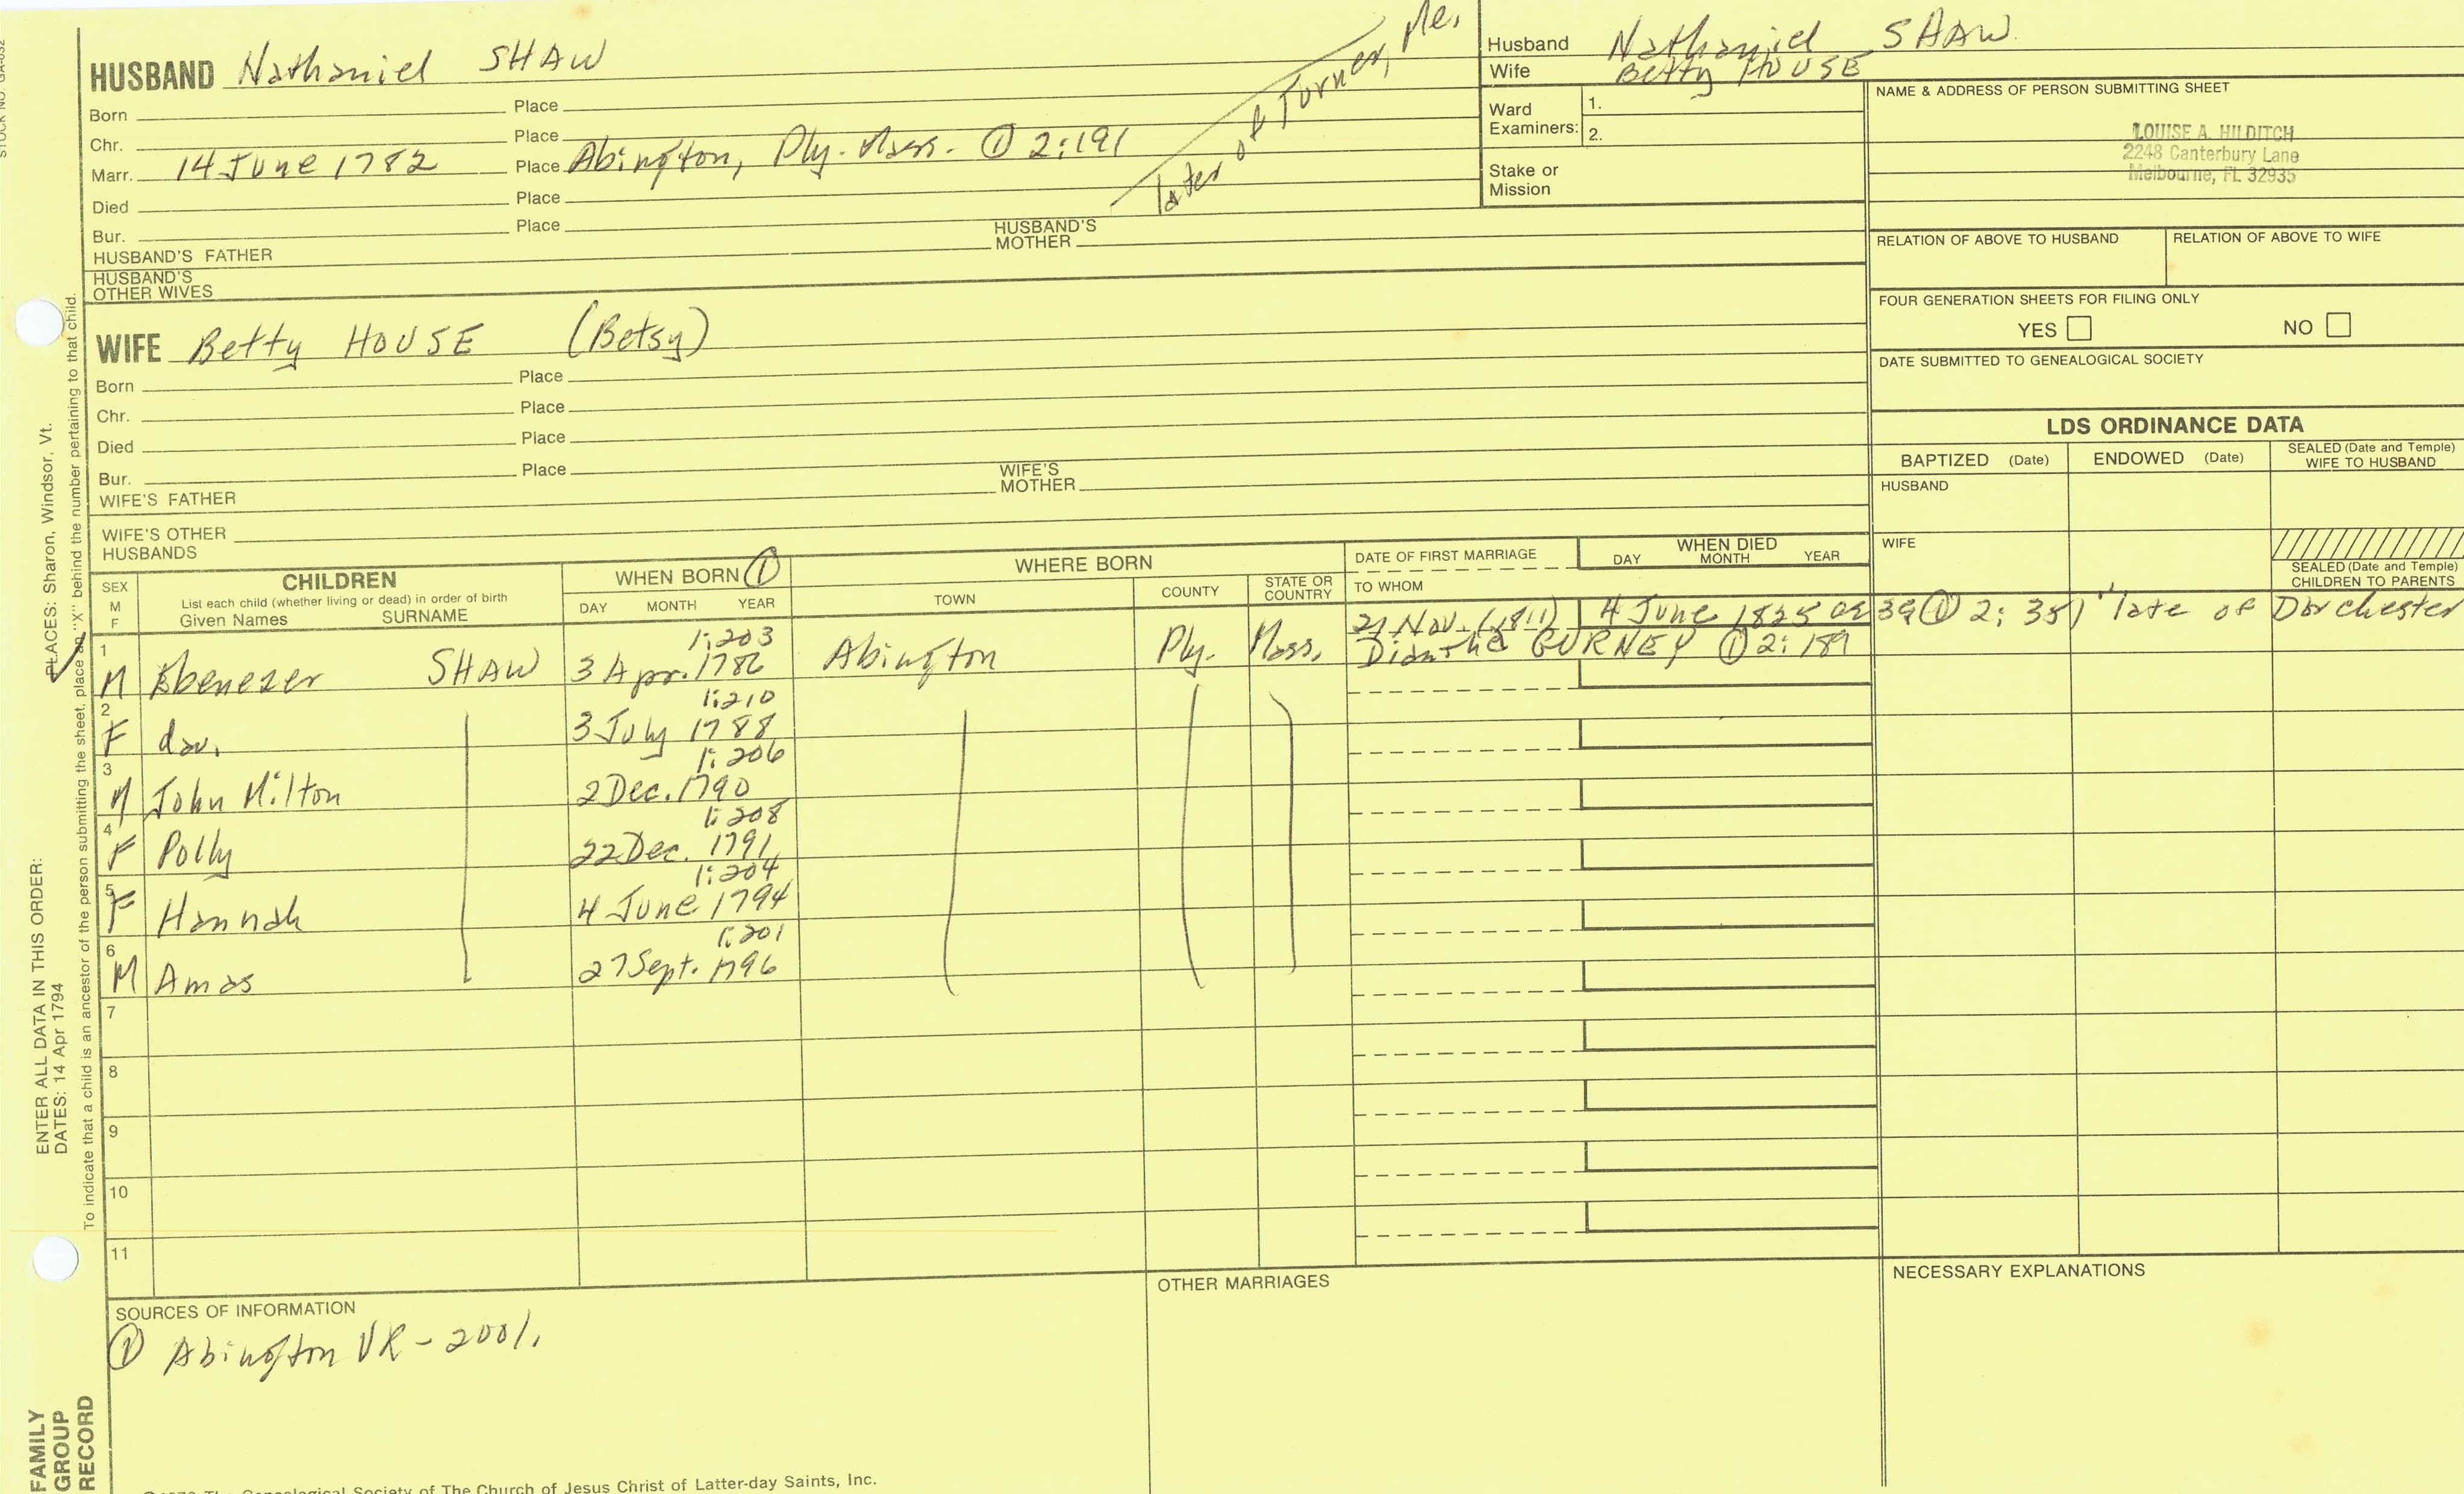 HUSBAND Nathaniel SHAW
Born Place
Chr. Place
Marr. 14 June 1782 Place Abington, Ply. Mass. ① 2:191
Died Place
Bur. Place
HUSBAND'S FATHER HUSBAND'S MOTHER
HUSBAND'S OTHER WIVES
later of Turner, Me.
Husband Nathaniel SHAW
Wife Betty HOUSE
Ward Examiners: 1.
2.
Stake or Mission
NAME & ADDRESS OF PERSON SUBMITTING SHEET
LOUISE A. HILDITCH
2248 Canterbury Lane
Melbourne, FL 32935
RELATION OF ABOVE TO HUSBAND RELATION OF ABOVE TO WIFE
FOUR GENERATION SHEETS FOR FILING ONLY
YES NO
DATE SUBMITTED TO GENEALOGICAL SOCIETY
WIFE Betty HOUSE (Betsy)
Born Place
Chr. Place
Died Place
Bur. Place
WIFE'S FATHER WIFE'S MOTHER
WIFE'S OTHER HUSBANDS
LDS ORDINANCE DATA
BAPTIZED (Date) ENDOWED (Date) SEALED (Date and Temple) WIFE TO HUSBAND
HUSBAND
WIFE
SEALED (Date and Temple) CHILDREN TO PARENTS
SEX M F
CHILDREN
List each child (whether living or dead) in order of birth
Given Names SURNAME
WHEN BORN ①
DAY MONTH YEAR
WHERE BORN
TOWN COUNTY STATE OR COUNTRY
DATE OF FIRST MARRIAGE
TO WHOM
WHEN DIED
DAY MONTH YEAR
1 M Ebenezer SHAW 1:203 3 Apr. 1786 Abington Ply. Mass. 21 Nov. (1811) 4 June 1825 ae 39 ① 2:351 "late of Dorchester
Diantha GURNEY ① 2:189
2 F dau. 1:210 3 July 1788
3 M John Milton 1:206 2 Dec. 1790
4 F Polly 1:208 22 Dec. 1791
5 F Hannah 1:204 4 June 1794
6 M Amos 1:201 27 Sept. 1796
7
8
9
10
11
SOURCES OF INFORMATION
① Abington VR - 2001.
OTHER MARRIAGES
NECESSARY EXPLANATIONS
ENTER ALL DATA IN THIS ORDER:
DATES: 14 Apr 1794
PLACES: Sharon, Windsor, Vt.
To indicate that a child is an ancestor of the person submitting the sheet, place an "X" behind the number pertaining to that child.
FAMILY
GROUP
RECORD
The Genealogical Society of The Church of Jesus Christ of Latter-day Saints, Inc.